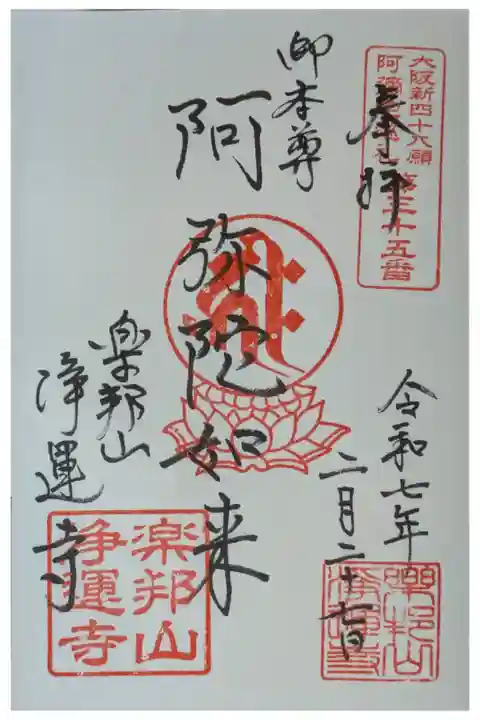 大阪新四十八願
阿彌陀巡礼
第三十五番
奉拝
御本尊
阿弥陀如来
楽邦山
浄運寺
令和七年
二月二十七日
楽邦山
浄運寺